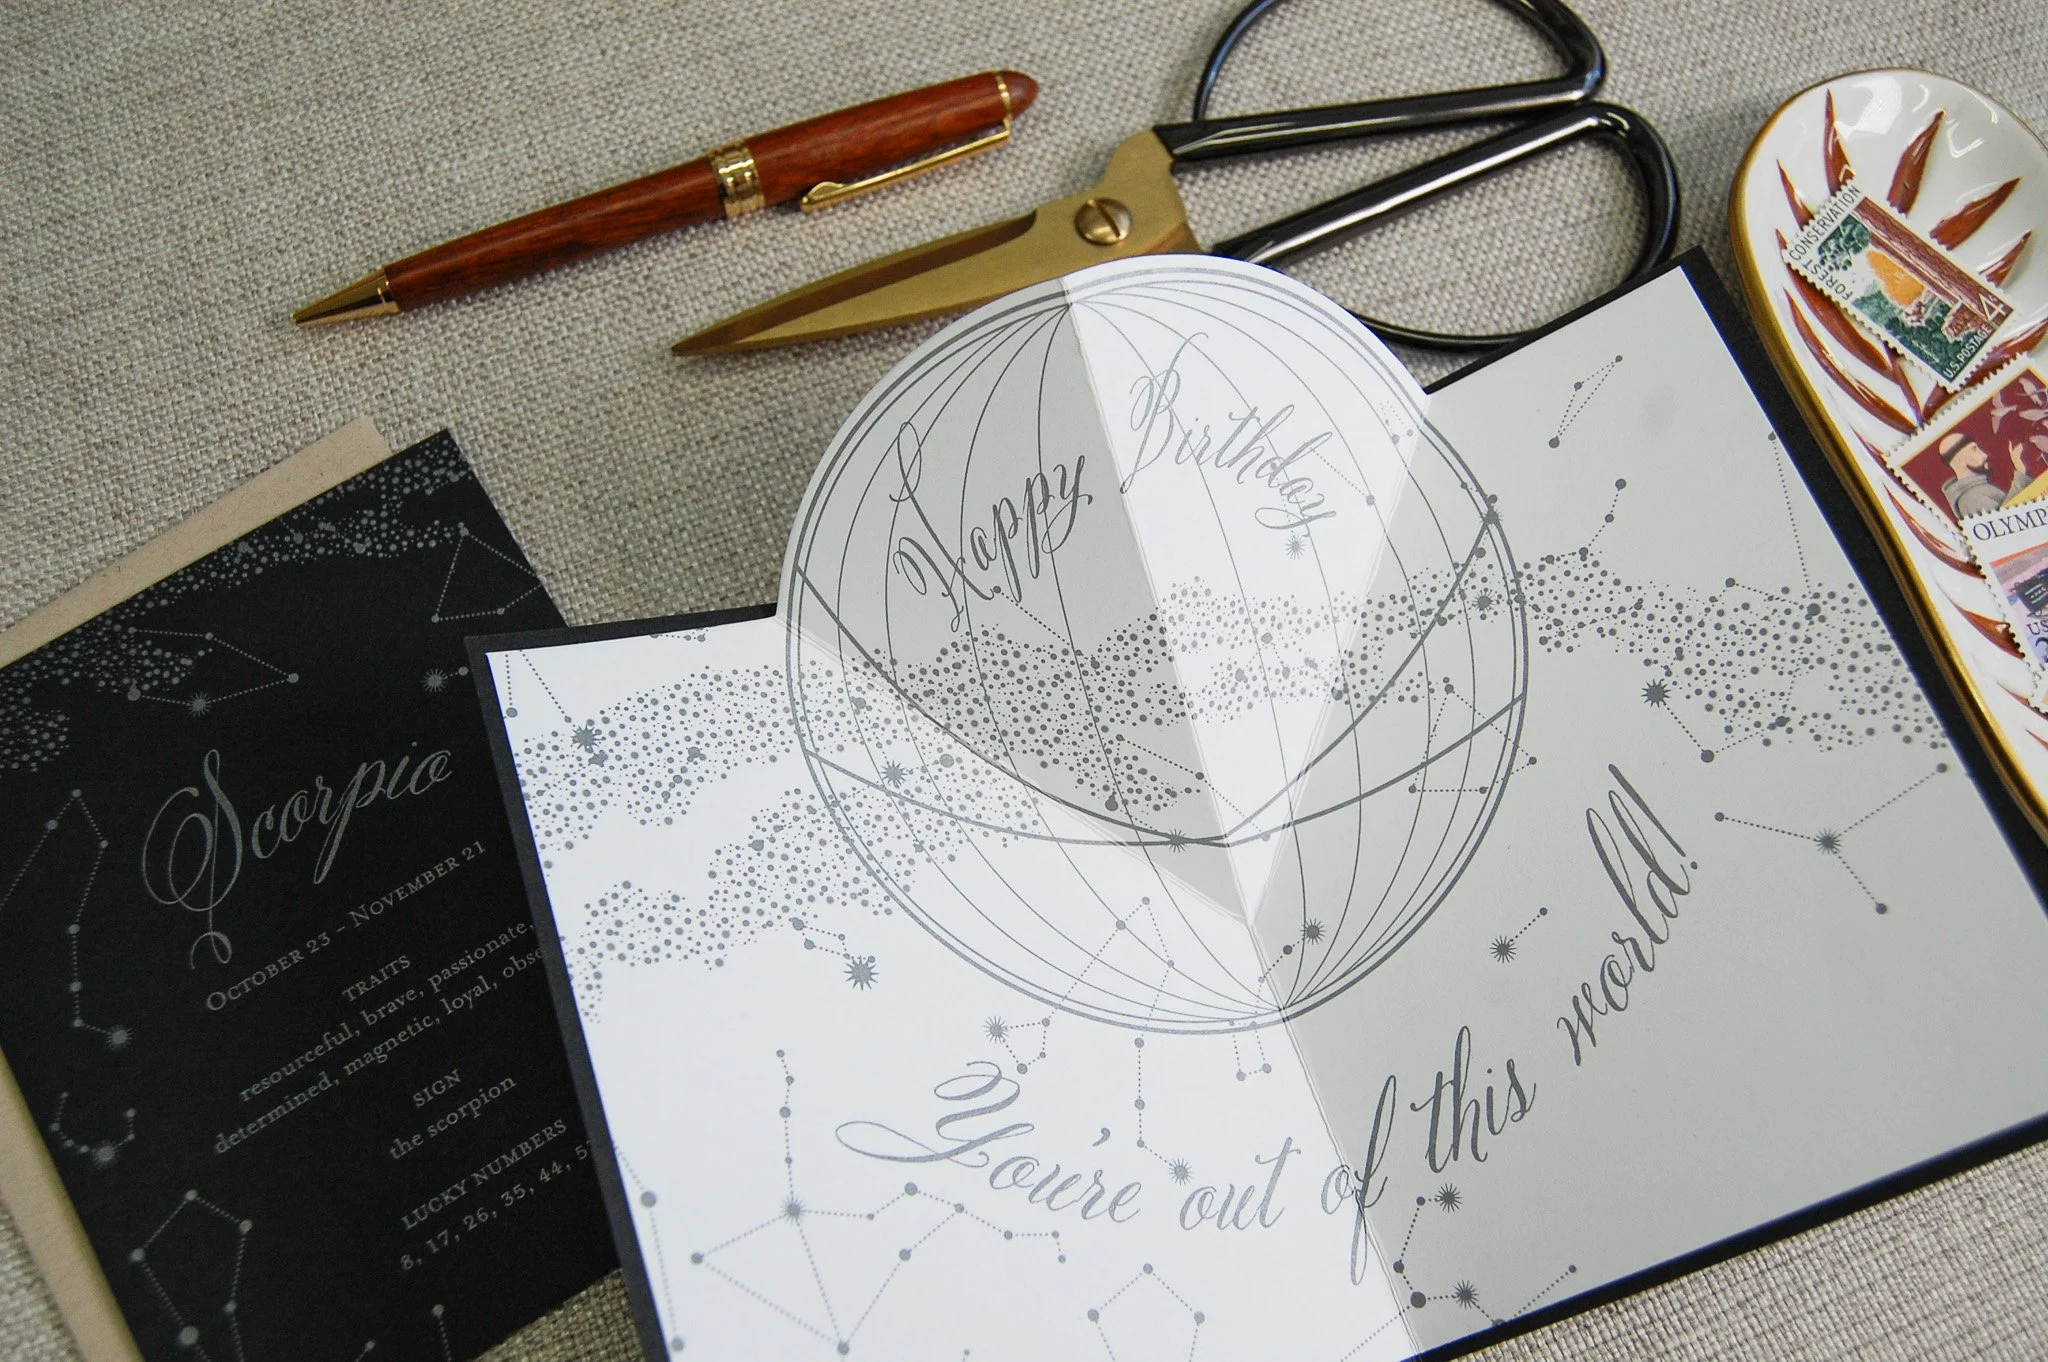 Scorpio
October 23 - November 21
TRAITS
resourceful, brave, passionate,
determined, magnetic, loyal,
SIGN
the scorpion
LUCKY NUMBERS
8, 17, 26, 35, 44,
Happy Birthday
You're out of this world!
FOREST CONSERVATION
4¢
U.S. POSTAGE